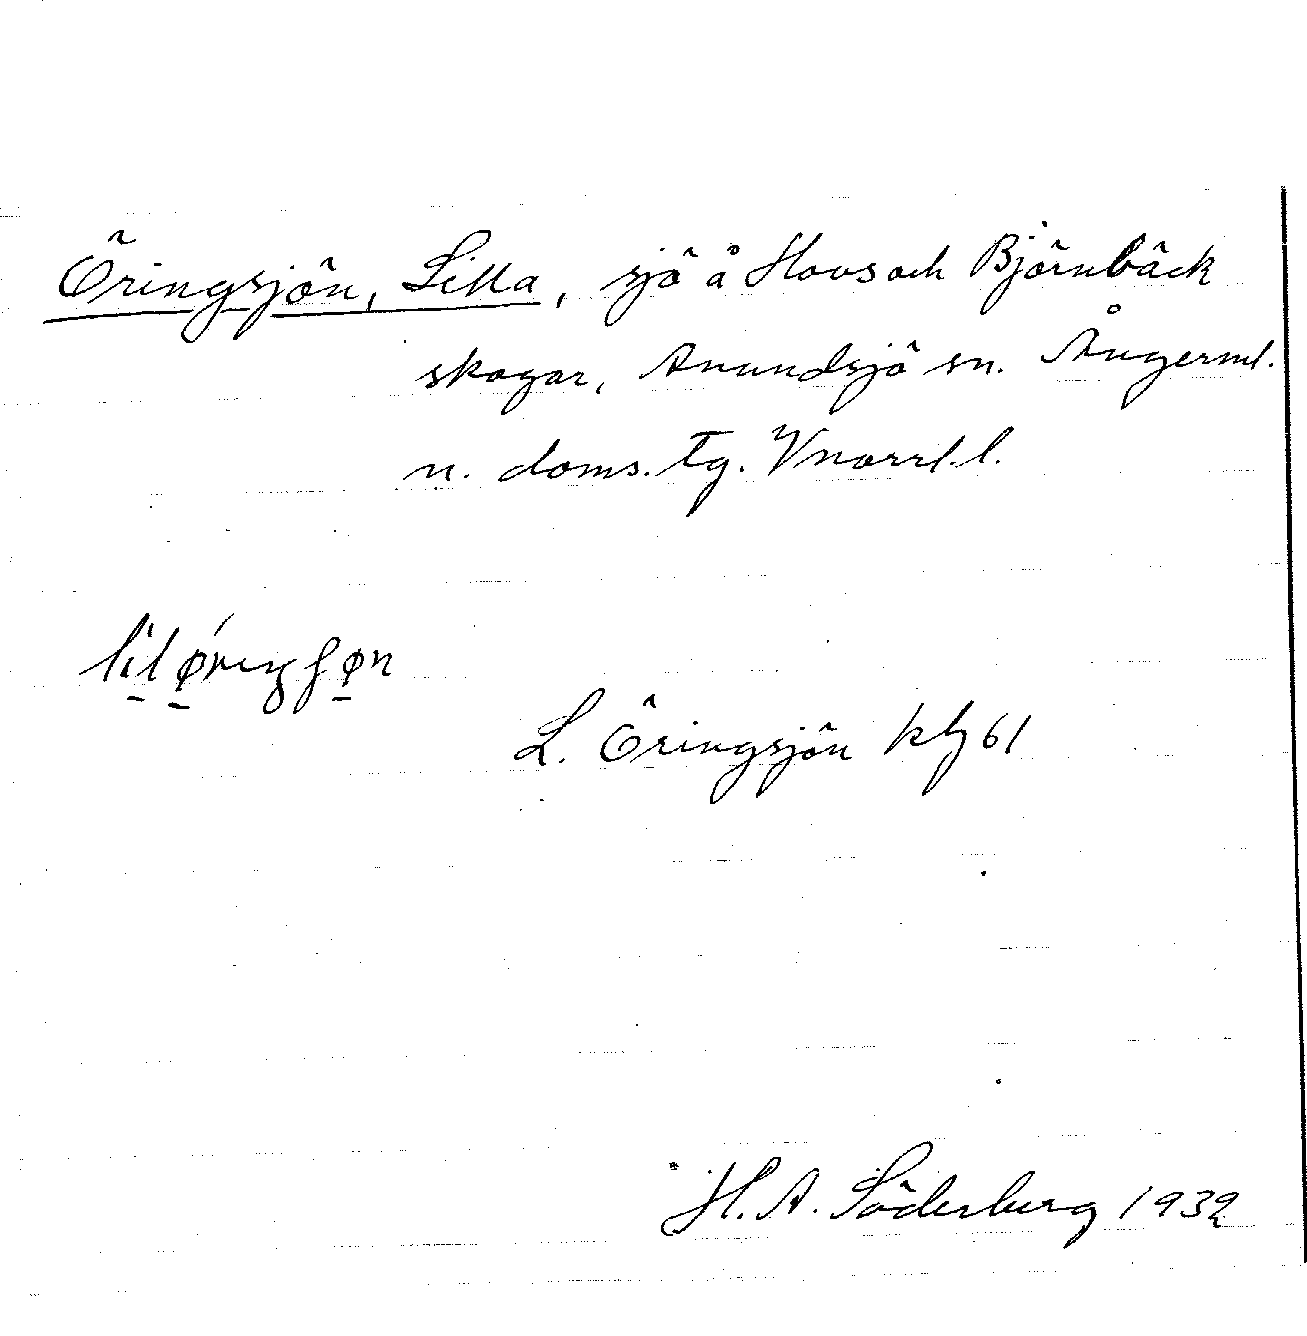 Öringsjön, Lilla, sjö å Hovs och Björnbäck
skogar, Anundsjö sn. Ångerml.
n. doms. tg. Vnorrl. l.
lil ǿ̱riŋʃø̱n
L. Öringsjön kbl 61
H. A. Söderberg 1932